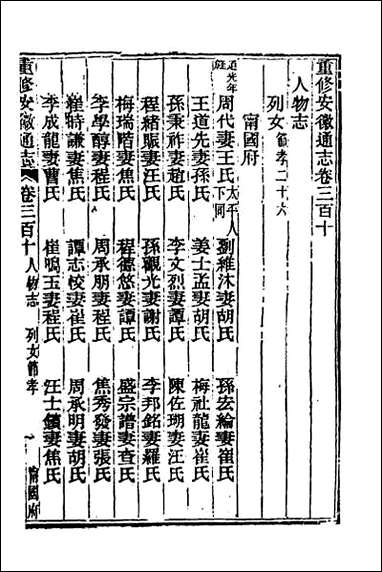 重修安徽通志卷三百十
人物志
列女節孝二十六
甯國府
道光年旌 周代妻王氏太平人下同 劉維沐妻胡氏 孫宏綸妻崔氏
王道先妻孫氏 姜士孟妻胡氏 梅社龍妻崔氏
孫秉祚妻趙氏 李文烈妻譚氏 陳佐瑚妻汪氏
程緒賑妻汪氏 孫觀光妻謝氏 李邦銘妻羅氏
梅瑞階妻焦氏 程德悠妻譚氏 盛宗譜妻查氏
李學醇妻程氏 周承朋妻程氏 焦秀發妻張氏
崔時謙妻焦氏 譚志恔妻崔氏 周承明妻胡氏
李成龍妻曹氏 崔鳴玉妻程氏 汪士鑌妻焦氏
重修安徽通志 卷三百十 人物志 列女節孝 一 甯國府